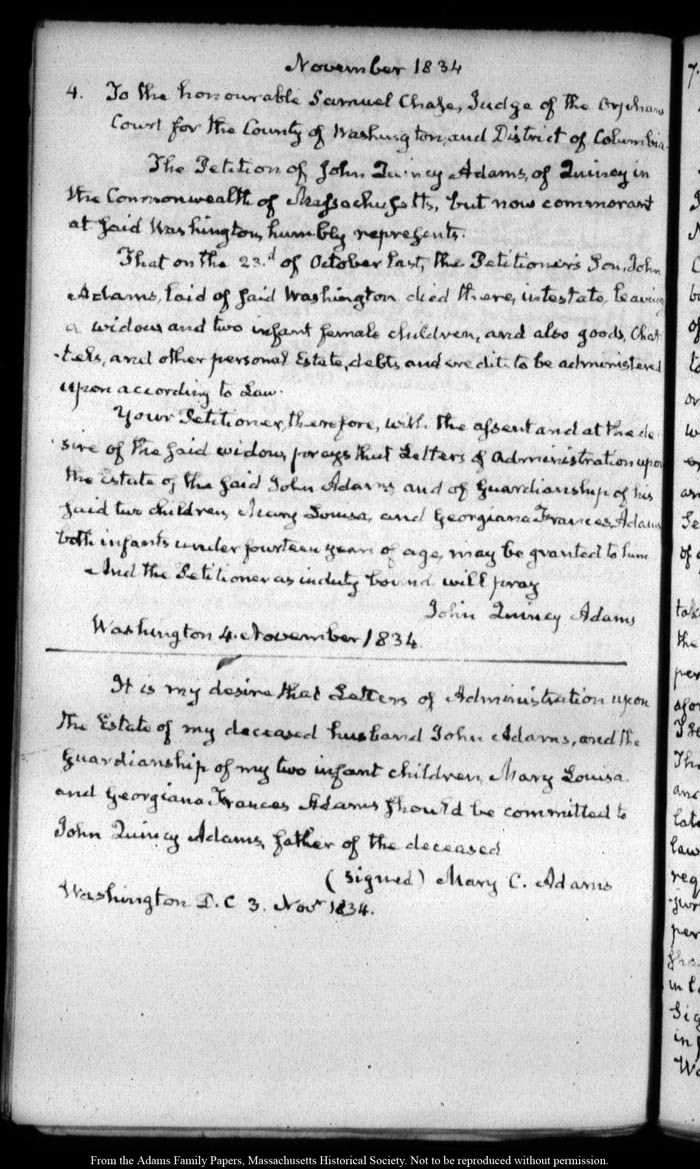 November 1834
4. To the honourable Samuel Chase, Judge of the Orphans
Court for the County of Washington, and District of Columbia.
The Petition of John Quincy Adams, of Quincy in
the Commonwealth of Massachusetts, but now commorant
at said Washington, humbly represents.
That on the 23.d of October last, the Petitioner's Son, John
Adams, late of said Washington died there, intestate, leaving
a widow and two infant female children, and also goods, Chat
-tels, and other personal Estate, debts and credits to be administered
upon according to Law.
Your Petitioner, therefore, with the assent and at the de-
sire of the said widow, prays that Letters of Administration upon
the Estate of the said John Adams and of Guardianship of his
said two children, Mary Louisa, and Georgiana Frances, Adams
both infants under fourteen years of age, may be granted to him
And the Petitioner as in duty bound will pray
John Quincy Adams
Washington 4. November 1834.
It is my desire that Letters of Administration upon
the Estate of my deceased husband John Adams, and the
Guardianship of my two infant children, Mary Louisa
and Georgiana Frances Adams should be committed to
John Quincy Adams, father of the deceased
(signed) Mary C. Adams
Washington D.C 3. Novr 1834.
From the Adams Family Papers, Massachusetts Historical Society. Not to be reproduced without permission.